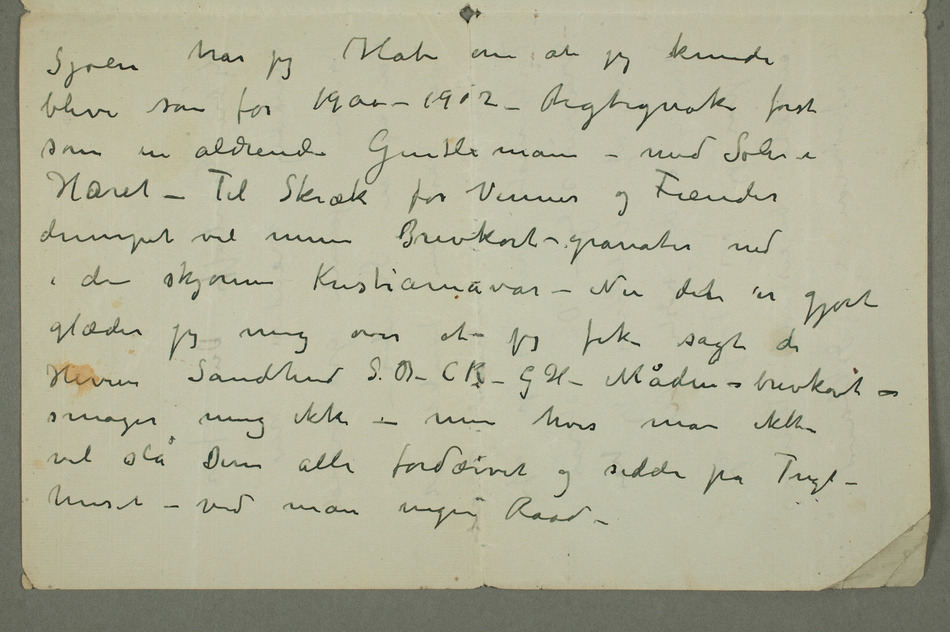 Sjølen har jeg Haab om at jeg kunde
blive som før 1900 – 1902 – Rigtignok først
som en aldrende Gentleman – med Sølv i
Håret – Til Skræk for Venner og Fiender
dumpet vel mine Brevkort-granater ned
i den skjønne Kristianiavår – Nu det er gjort
glæder jeg mig over at jeg fik sagt de
Herrer Sandhed S. B– C K – G H – Måden – brevkort –
smager mig ikke – men hvis man ikke
vil slå Dem alle fordærvet og sidde på Tugt-
huset – ved man ingen Raad –